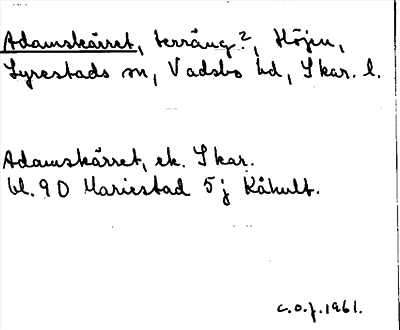 Adamskärret, terräng?, Höjen,
Lyrestads sn, Vadsbo hd, Skar. l.
Adamskärret, ek. Skar.
bl. 9D Mariestad 5j Kåhult.
c.o.f. 1961.